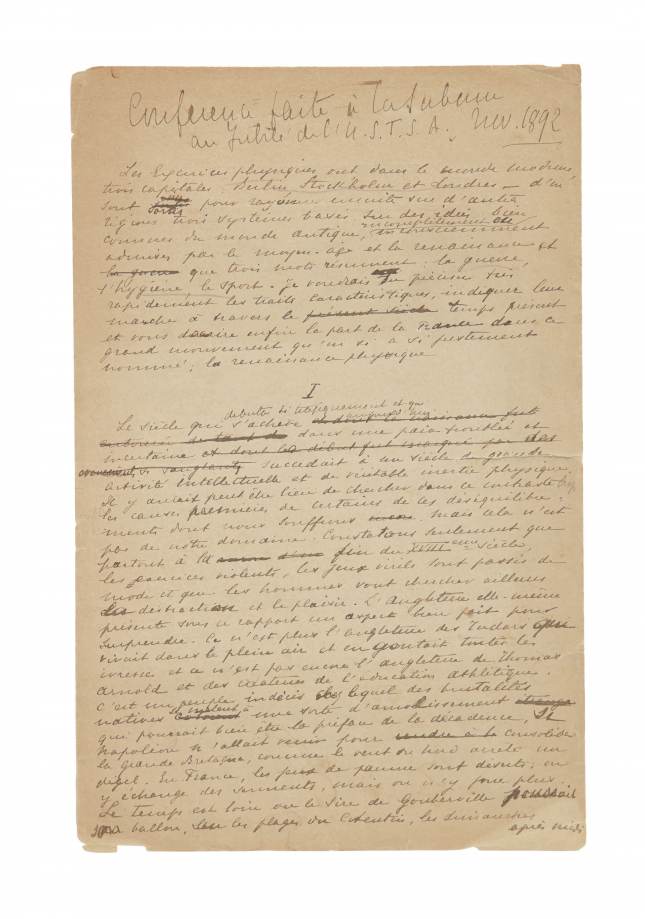 Conférence faite à la Sorbonne
au Jubilé de l'U.S.F.S.A. Nov. 1892
Les Exercices physiques ont dans le monde moderne
trois capitales: Berlin, Stockholm et Londres — d'où
sont sortis pour rayonner ensuite sur d'autres
régions trois systèmes basés sur des idées bien
connues du monde antique, incomplètement ou inconsciemment
admises par le moyen-âge et la renaissance et
la guerre que trois mots résument: la guerre,
l'hygiène, le sport. Je voudrais en préciser très
rapidement les traits caractéristiques, indiquer leur
marche à travers le présent siècle temps présent
et vous dire enfin la part de la France dans ce
grand mouvement qu'on a si justement
nommé: la renaissance physique
I
débuta si tragiquement et qui
Le siècle qui s'achève et dont la
dans une paix troublée et
incertaine et dont le début fut marqué par des
évènements si sanglants, succédait à un siècle de grande
activité intellectuelle et de véritable inertie physique.
Il y aurait peut être lieu de chercher dans ce contraste
les causes premières de certains de ces déséquilibre-
ments dont nous souffrons. Mais cela n'est
pas de notre domaine. Constatons seulement que
partout à la fin du XVIIIème siècle,
les exercices violents, les jeux virils sont passés de
mode et que les hommes vont chercher ailleurs
la distraction et le plaisir. L'Angleterre elle-même
présente sous ce rapport un aspect bien fait pour
surprendre. Ce n'est plus l'angleterre des Tudors qui
vivait dans le plein air et en goûtait toutes les
ivresses et ce n'est pas encore l'angleterre de Thomas
Arnold et des créateurs de l'éducation athlétique.
C'est un peuple indécis chez lequel des brutalités
natives se mêlent à une sorte d'amollissement étrange
qui pourrait bien être la préface de la décadence, si
Napoléon n'allait venir pour rendre à la consolider
la grande Bretagne, comme le vent du nord arrête un
dégel. En France, les jeux de paume sont déserts; on
y échange des serments, mais on n'y joue plus.
Le temps est loin où le Sire de Gouberville poussait
son ballon, sur les plages du Cotentin, les dimanches
après midi